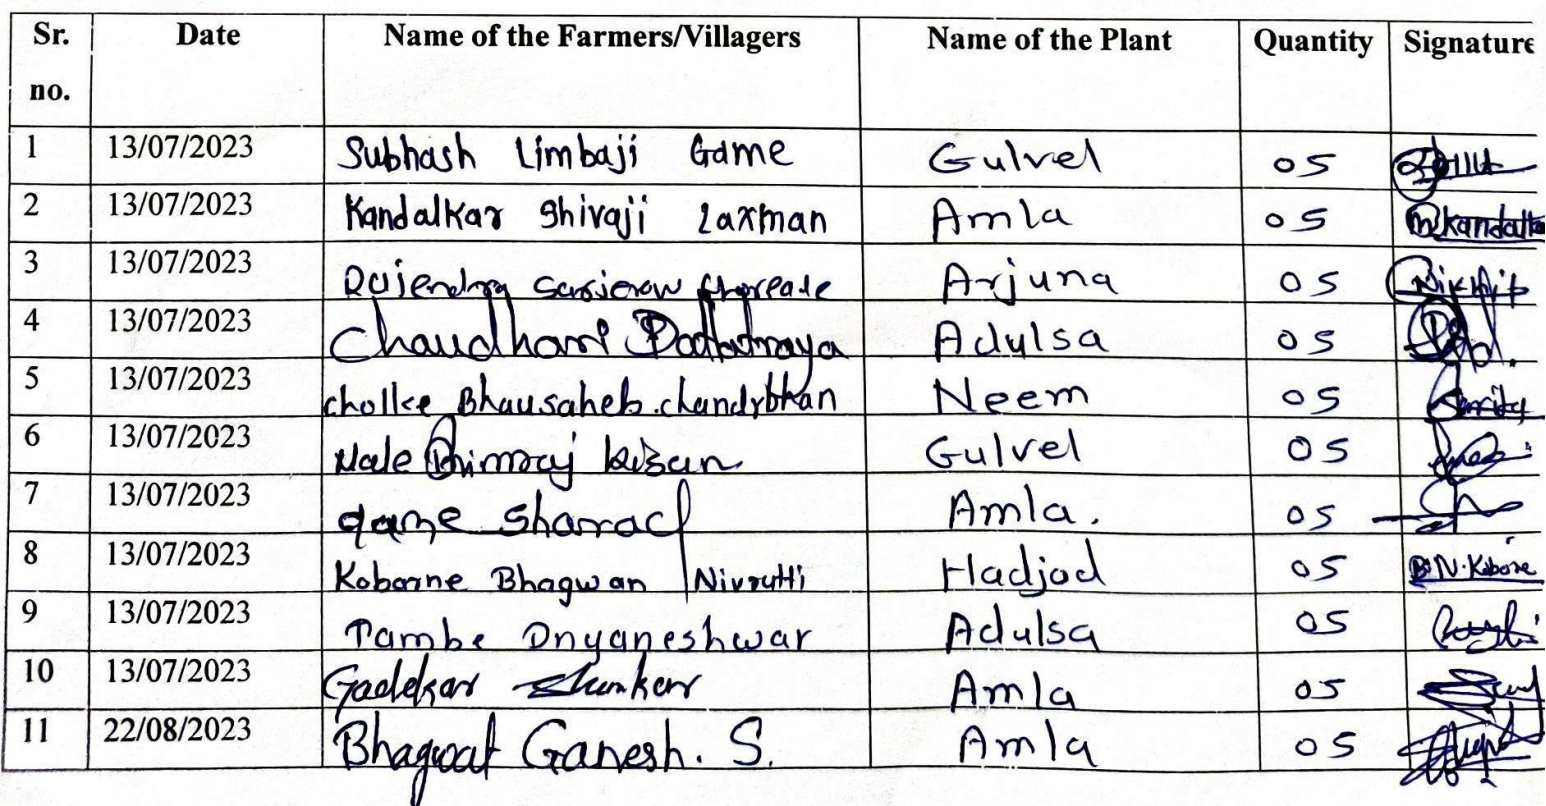 Sr. no. Date Name of the Farmers/Villagers Name of the Plant Quantity Signature
1 13/07/2023 Subhash Limbaji Game Gulvel 05
2 13/07/2023 Kandalkar Shivaji Laxman Amla 05 Kandalka
3 13/07/2023 Rajendra Arjuna 05
4 13/07/2023 Chaudhari Dattatraya Adulsa 05
5 13/07/2023 cholke Bhausaheb. chandrbhan Neem 05
6 13/07/2023 Nale Bhimraj kisan Gulvel 05
7 13/07/2023 game Sharad Amla. 05
8 13/07/2023 Kobarne Bhagwan Nivrutti Hadjod 05 B.N. Kobarne
9 13/07/2023 Tambe Dnyaneshwar Adulsa 05
10 13/07/2023 Gadekar Shankar Amla 05
11 22/08/2023 Bhagwat Ganesh. S. Amla 05